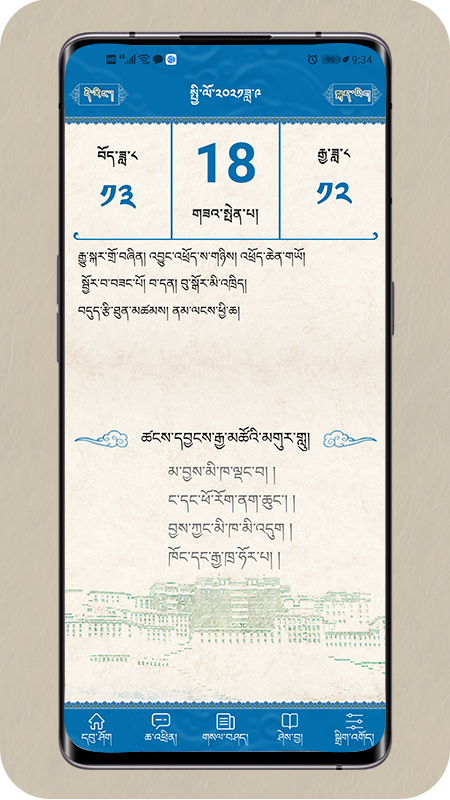 9:34
དེ་རིང་།
སྤྱི་ལོ་༢༠༢༡ཟླ་༩
བོད་ཟླ་༨
༡༣
18
གཟའ་སྤེན་པ།
རྒྱ་ཟླ་༨
༡༢
རྒྱུ་སྐར་གྲོ་བཞིན། འབྱུང་འཕྲོད་ས་གཉིས། འཕྲོད་ཆེན་གཡོ།
སྦྱོར་བ་བཟང་པོ། བ་དན། བུ་སྒོར་མི་འཁྲིད།
བདུད་རྩི་ཐུན་མཚམས། ནམ་ལངས་ཕྱི་ཆ།
ཚངས་དབྱངས་རྒྱ་མཚོའི་མགུར་གླུ།
མ་བྱས་མི་ཁ་ལྡང་བ། །
ང་དང་ཕོ་རོག་ནག་ཆུང་། །
བྱས་ཀྱང་མི་ཁ་མི་འདུག །
ཁོང་དང་རྒྱ་ཁྲ་ཧོར་པ། །
དབུ་ཤོག
ཆ་འཕྲིན།
གསལ་བཤད།
ཤེས་བྱ།
སྒྲིག་འགོད།